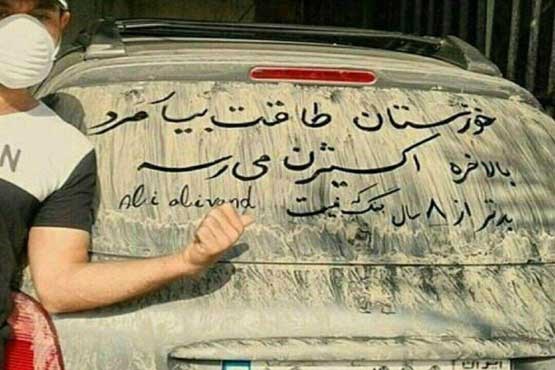 خوزستان طاقت بیا مرد
بالاخره اکسیژن می رسه
بدتر از ۸ سال جنگ نیست
Ali alivand